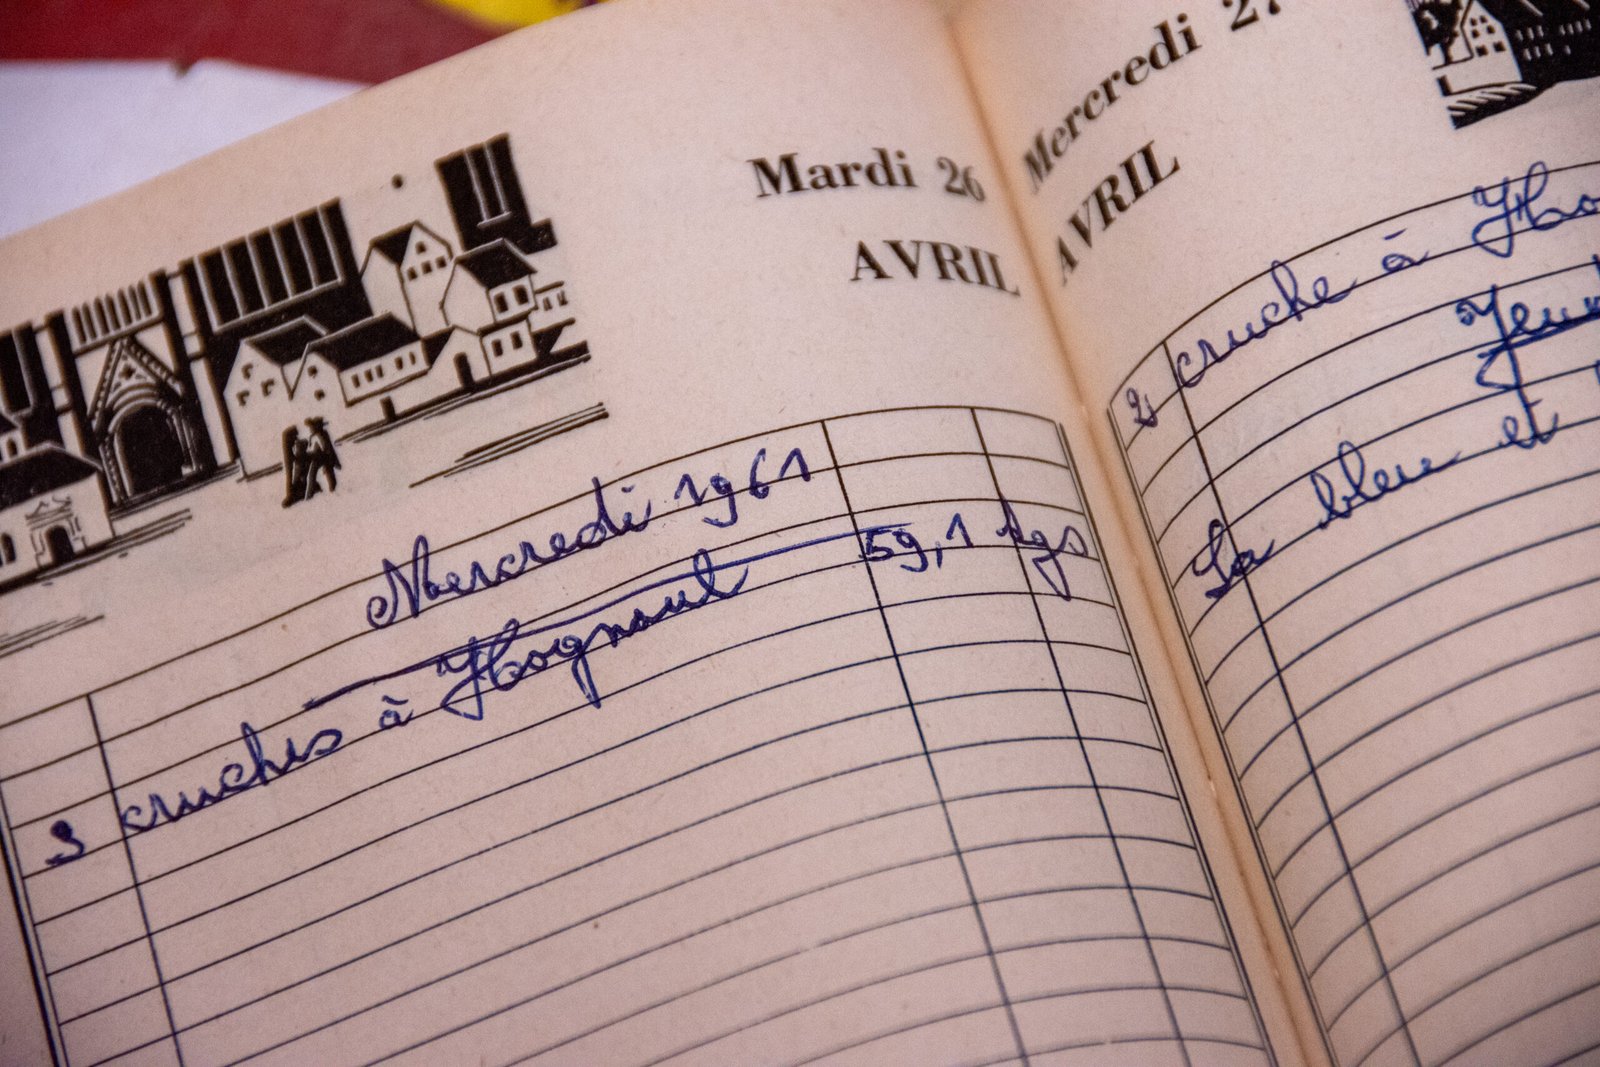 Mardi 26
AVRIL
Mercredi 1961
3 cruches à Hognoul 59,1 kgs
Mercredi 27
AVRIL
2 cruche à
La bleu et